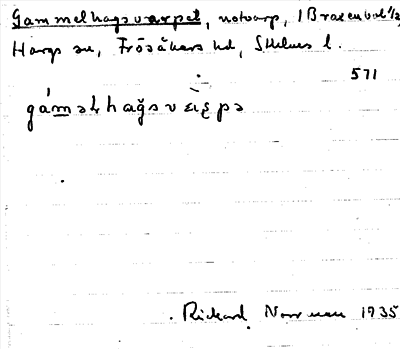 Gammelhagsvarpet, notvarp, 1 Braxenbol 1/2,
Hargs sn, Frösåkers hd, Sthlms l.
571
gáməlhaǧsvεrpə
Rickard Norrman 1935